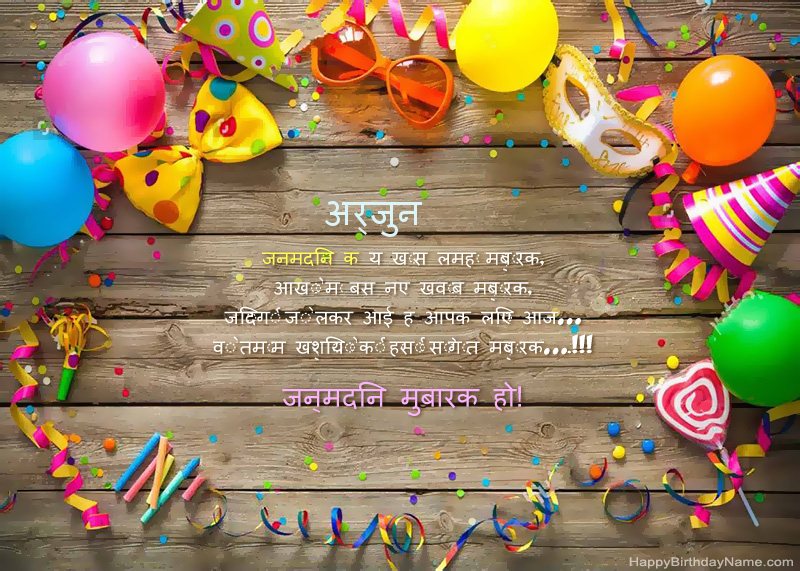 अर्जुन
जनमदनि क य खास लमहा मबारक,
आखों मे बसे नए खवाब मबारक,
जदिगी जो लेकर आई ह आपके लएि आज...
वो तमाम खशयिों की हसी सौगात मबारक...!!!
जन्मदनि मुबारक हो!
HappyBirthdayName.com